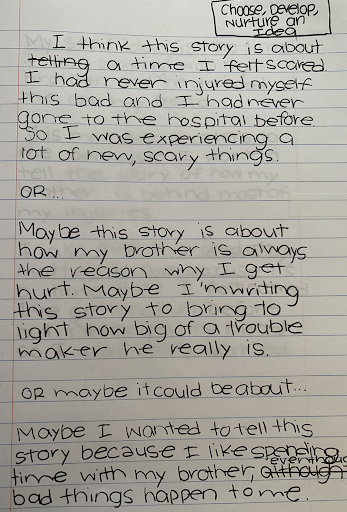 Choose, Develop,
Nurture an
Idea
I think this story is about
telling a time I felt scared.
I had never injured myself
this bad and I had never
gone to the hospital before.
So I was experiencing a
lot of new, scary things.
OR...
Maybe this story is about
how my brother is always
the reason why I get
hurt. Maybe I'm writing
this story to bring to
light how big of a trouble
maker he really is.
OR maybe it could be about...
Maybe I wanted to tell this
story because I like spending
time with my brother, although even though
bad things happen to me.